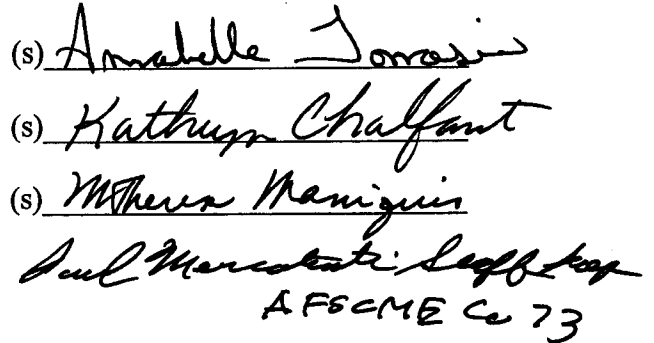 (s) Annabelle
(s) Kathryn Chalfant
(s) MTheresa Maniquis
Paul Staff Rep
AFSCME Co 73